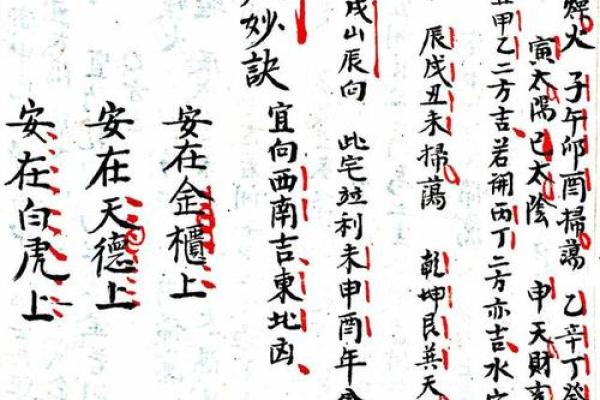 火 子午卯酉掃蕩 乙辛丁癸
寅太陽巳太陰 申天財
甲乙二方吉若開丙丁二方亦吉水
辰戌丑未掃蕩 乾坤艮巽天
戌山辰向 此宅並利未申酉年
妙訣 宜向西南吉東北凶
安在金櫃上
安在天德上
安在白虎上